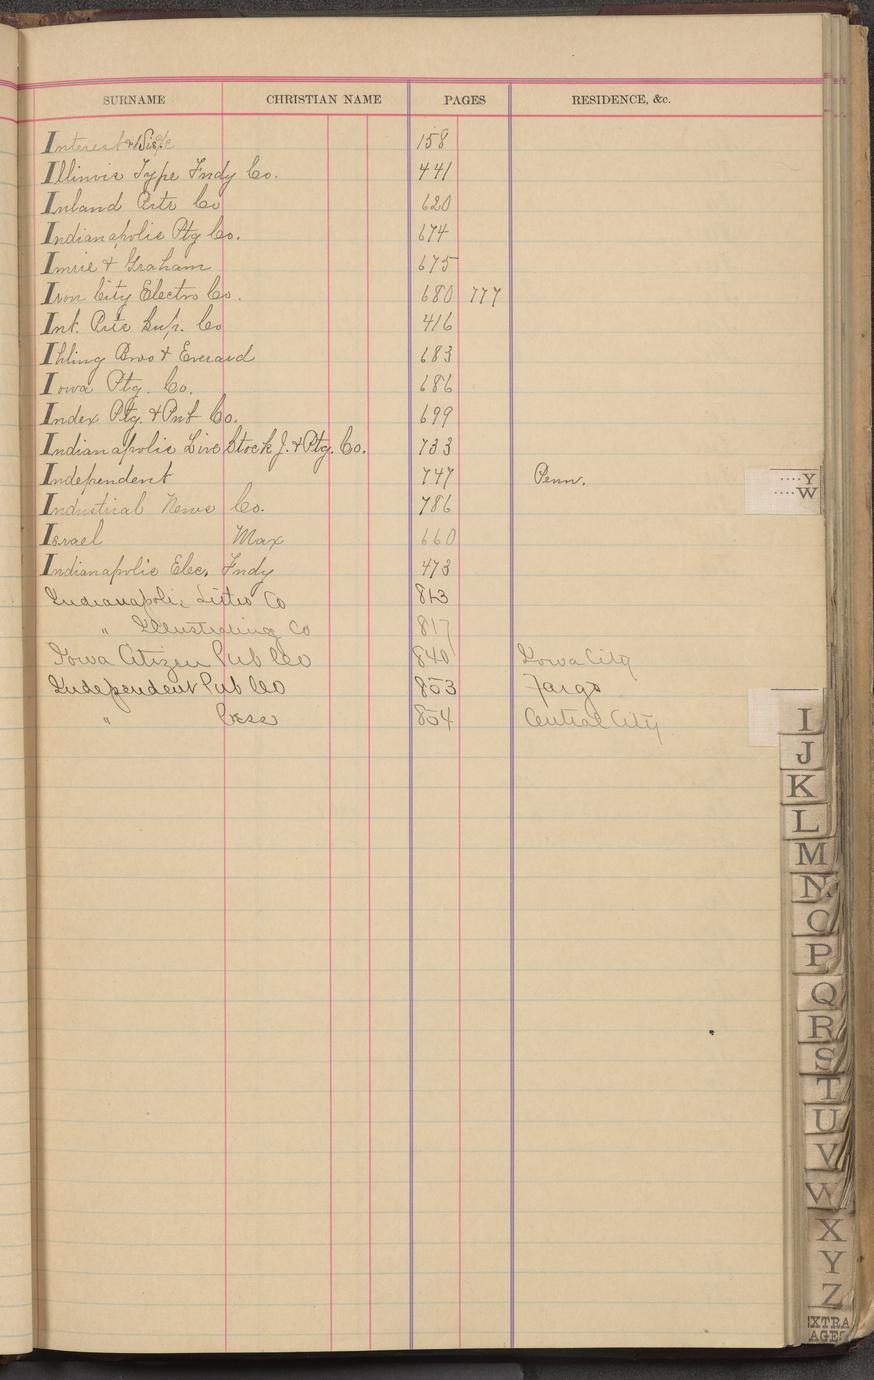 SURNAME CHRISTIAN NAME PAGES RESIDENCE, &c.
Interest & Dis/c 158
Illinois Type Fndy Co. 441
Inland Ptg Co 620
Indianapolis Ptg Co. 674
Imrie & Graham 675
Iron City Electro Co. 680 777
Int. Ptg Sup. Co 416
Ihling Bros & Everard 683
Iowa Ptg. Co. 686
Index Ptg. & Pub Co. 699
Indianapolis Live Stock J. & Ptg. Co. 733
Independent 747 Penn.
Industrial News Co. 786
Israel Max 660
Indianapolis Elec. Fndy 473
Indianapolis Litho Co 813
" Illustrating Co 817
Iowa Citizen Pub Co 840 Iowa City
Independent Pub Co 853 Fargo
" Press 854 Central City
Y
W
I
J
K
L
M
N
O
P
Q
R
S
T
U
V
W
X
Y
Z
EXTRA
PAGES